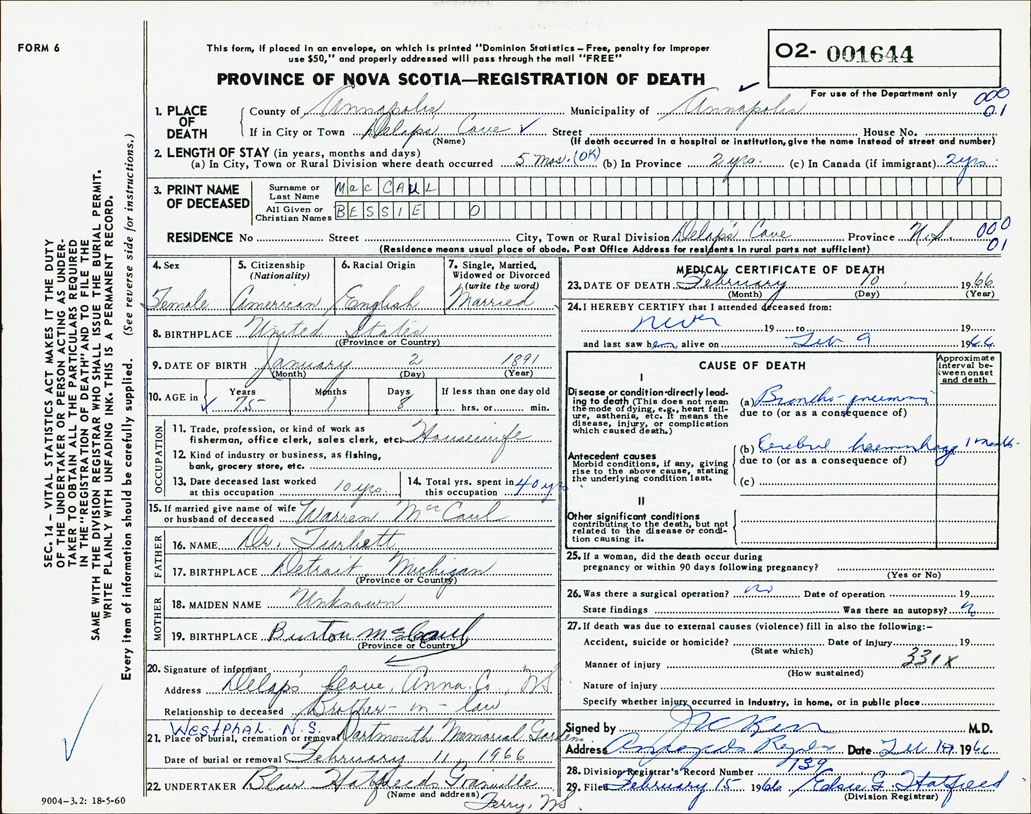 FORM 6
This form, if placed in an envelope, on which is printed "Dominion Statistics – Free, penalty for improper
use $50," and properly addressed will pass through the mail "FREE"
PROVINCE OF NOVA SCOTIA—REGISTRATION OF DEATH
O2- 001644
For use of the Department only
000
01
1. PLACE OF DEATH
County of Annapolis Municipality of Annapolis
If in City or Town Delaps Cove Street House No.
(Name) (If death occurred in a hospital or institution, give the name instead of street and number)
2. LENGTH OF STAY (in years, months and days)
(a) In City, Town or Rural Division where death occurred 5 mos. (OK) (b) In Province 2 yrs. (c) In Canada (if immigrant) 2 yrs.
3. PRINT NAME OF DECEASED
Surname or Last Name MacCAUL
All Given or Christian Names BESSIE O
RESIDENCE No Street City, Town or Rural Division Delap's Cove Province N.S.
000
01
(Residence means usual place of abode. Post Office Address for residents in rural parts not sufficient)
4. Sex
Female
5. Citizenship (Nationality)
American
6. Racial Origin
English
7. Single, Married, Widowed or Divorced (write the word)
Married
8. BIRTHPLACE United States
(Province or Country)
9. DATE OF BIRTH January 2 1891
(Month) (Day) (Year)
10. AGE in Years 75 Months 1 Days 8 If less than one day old
hrs. or min.
OCCUPATION
11. Trade, profession, or kind of work as
fisherman, office clerk, sales clerk, etc. Housewife
12. Kind of industry or business, as fishing,
bank, grocery store, etc.
13. Date deceased last worked
at this occupation 10 yrs.
14. Total yrs. spent in
this occupation 40 yrs
15. If married give name of wife
or husband of deceased Warren MacCaul
FATHER
16. NAME Dr. Turbett
17. BIRTHPLACE Detroit Michigan
(Province or Country)
MOTHER
18. MAIDEN NAME Unknown
19. BIRTHPLACE Burton McCaul
(Province or Country)
20. Signature of informant
Address Delaps Cove, Anna. Co., NS
Relationship to deceased Brother-in-law
Westphal N.S.
21. Place of burial, cremation or removal Dartmouth Memorial Gardens
Date of burial or removal February 11, 1966
22. UNDERTAKER Blair Hatfield Granville
(Name and address) Ferry, NS
9004-3.2: 18-5-60
MEDICAL CERTIFICATE OF DEATH
23. DATE OF DEATH February 10 1966
(Month) (Day) (Year)
24. I HEREBY CERTIFY that I attended deceased from:
never 19 to 19
and last saw her alive on Feb 9 1966
CAUSE OF DEATH
Approximate interval between onset and death
I
Disease or condition directly leading to death (This does not mean the mode of dying, e.g., heart failure, asthenia, etc. It means the disease, injury, or complication which caused death.)
(a) Broncho-pneumonia
due to (or as a consequence of)
Antecedent causes
Morbid conditions, if any, giving rise to the above cause, stating the underlying condition last.
(b) Cerebral haemorrhage 1 month
due to (or as a consequence of)
(c)
II
Other significant conditions
contributing to the death, but not related to the disease or condition causing it.
25. If a woman, did the death occur during
pregnancy or within 90 days following pregnancy?
(Yes or No)
26. Was there a surgical operation? no Date of operation 19
State findings Was there an autopsy? no
27. If death was due to external causes (violence) fill in also the following:–
Accident, suicide or homicide? Date of injury 19
(State which)
331X
Manner of injury
(How sustained)
Nature of injury
Specify whether injury occurred in Industry, in home, or in public place
Signed by M.D.
Address Annapolis Royal Date Feb 1966
28. Division Registrar's Record Number 139
29. Filed February 15 1966 Elsie G. Hatfield
(Division Registrar)
SEC. 14 – VITAL STATISTICS ACT MAKES IT THE DUTY
OF THE UNDERTAKER OR PERSON ACTING AS UNDER-
TAKER TO OBTAIN ALL THE PARTICULARS REQUIRED
IN THE "REGISTRATION OF DEATH" AND TO FILE THE
SAME WITH THE DIVISION REGISTRAR WHO SHALL ISSUE THE BURIAL PERMIT.
WRITE PLAINLY WITH UNFADING INK. THIS IS A PERMANENT RECORD.
Every item of information should be carefully supplied. (See reverse side for instructions.)